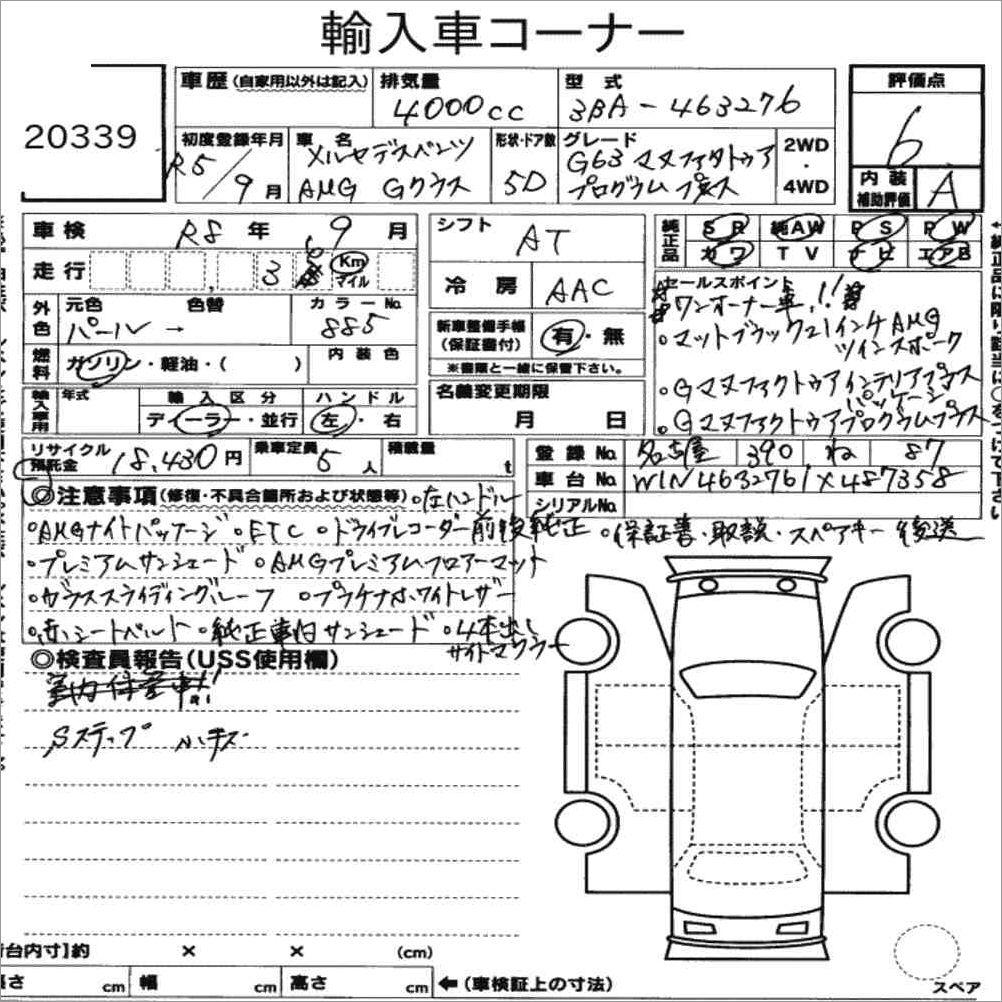 輸入車コーナー
20339
車歴(自家用以外は記入)
排気量
4000cc
型式
3BA-463276
評価点
6
内装
補助評価
A
初度登録年月
R5/9月
車名
メルセデスベンツ
AMG Gクラス
形状・ドア数
5D
グレード
G63 マヌファクトゥア
プログラム プラス
2WD
・
4WD
車検 R8年 9月
走行
3
Km
マイル
外色
元色 色替 カラーNo.
パール → 885
燃料
ガソリン・軽油・( )
内装色
輸入車用
年式
輸入区分
ディーラー・並行
ハンドル
左・右
シフト
AT
冷房
AAC
新車整備手帳
(保証書付)
有・無
※書類と一緒に保管下さい。
名義変更期限
月 日
純正品
SR 純AW PS PW
カワ TV ナビ エアB
セールスポイント
ワンオーナー車!!
・マットブラック21インチAMG
ツインスポーク
・Gマヌファクトゥアインテリアプラス
パッケージ
・Gマヌファクトゥアプログラムプラス
リサイクル
預託金
18,430円
乗車定員
5人
積載量
t
登録No.
名古屋 390 ね 87
車台No.
W1N4632761X487358
シリアルNo.
◎注意事項(修復・不具合箇所および状態等)
・左ハンドル
・AMGナイトパッケージ ・ETC ・ドライブレコーダー前後純正 ・保証書・取説・スペアキー後送
・プレミアムサンシェード ・AMGプレミアムフロアーマット
・ガラススライディングルーフ ・プラチナホワイトレザー
・赤いシートベルト ・純正車旧サンシェード ・4本出し
サイドマフラー
◎検査員報告(USS使用欄)
Sステップ 小キズ
台内寸】約 × × (cm)
長さ cm 幅 cm 高さ cm ←(車検証上の寸法)
スペア